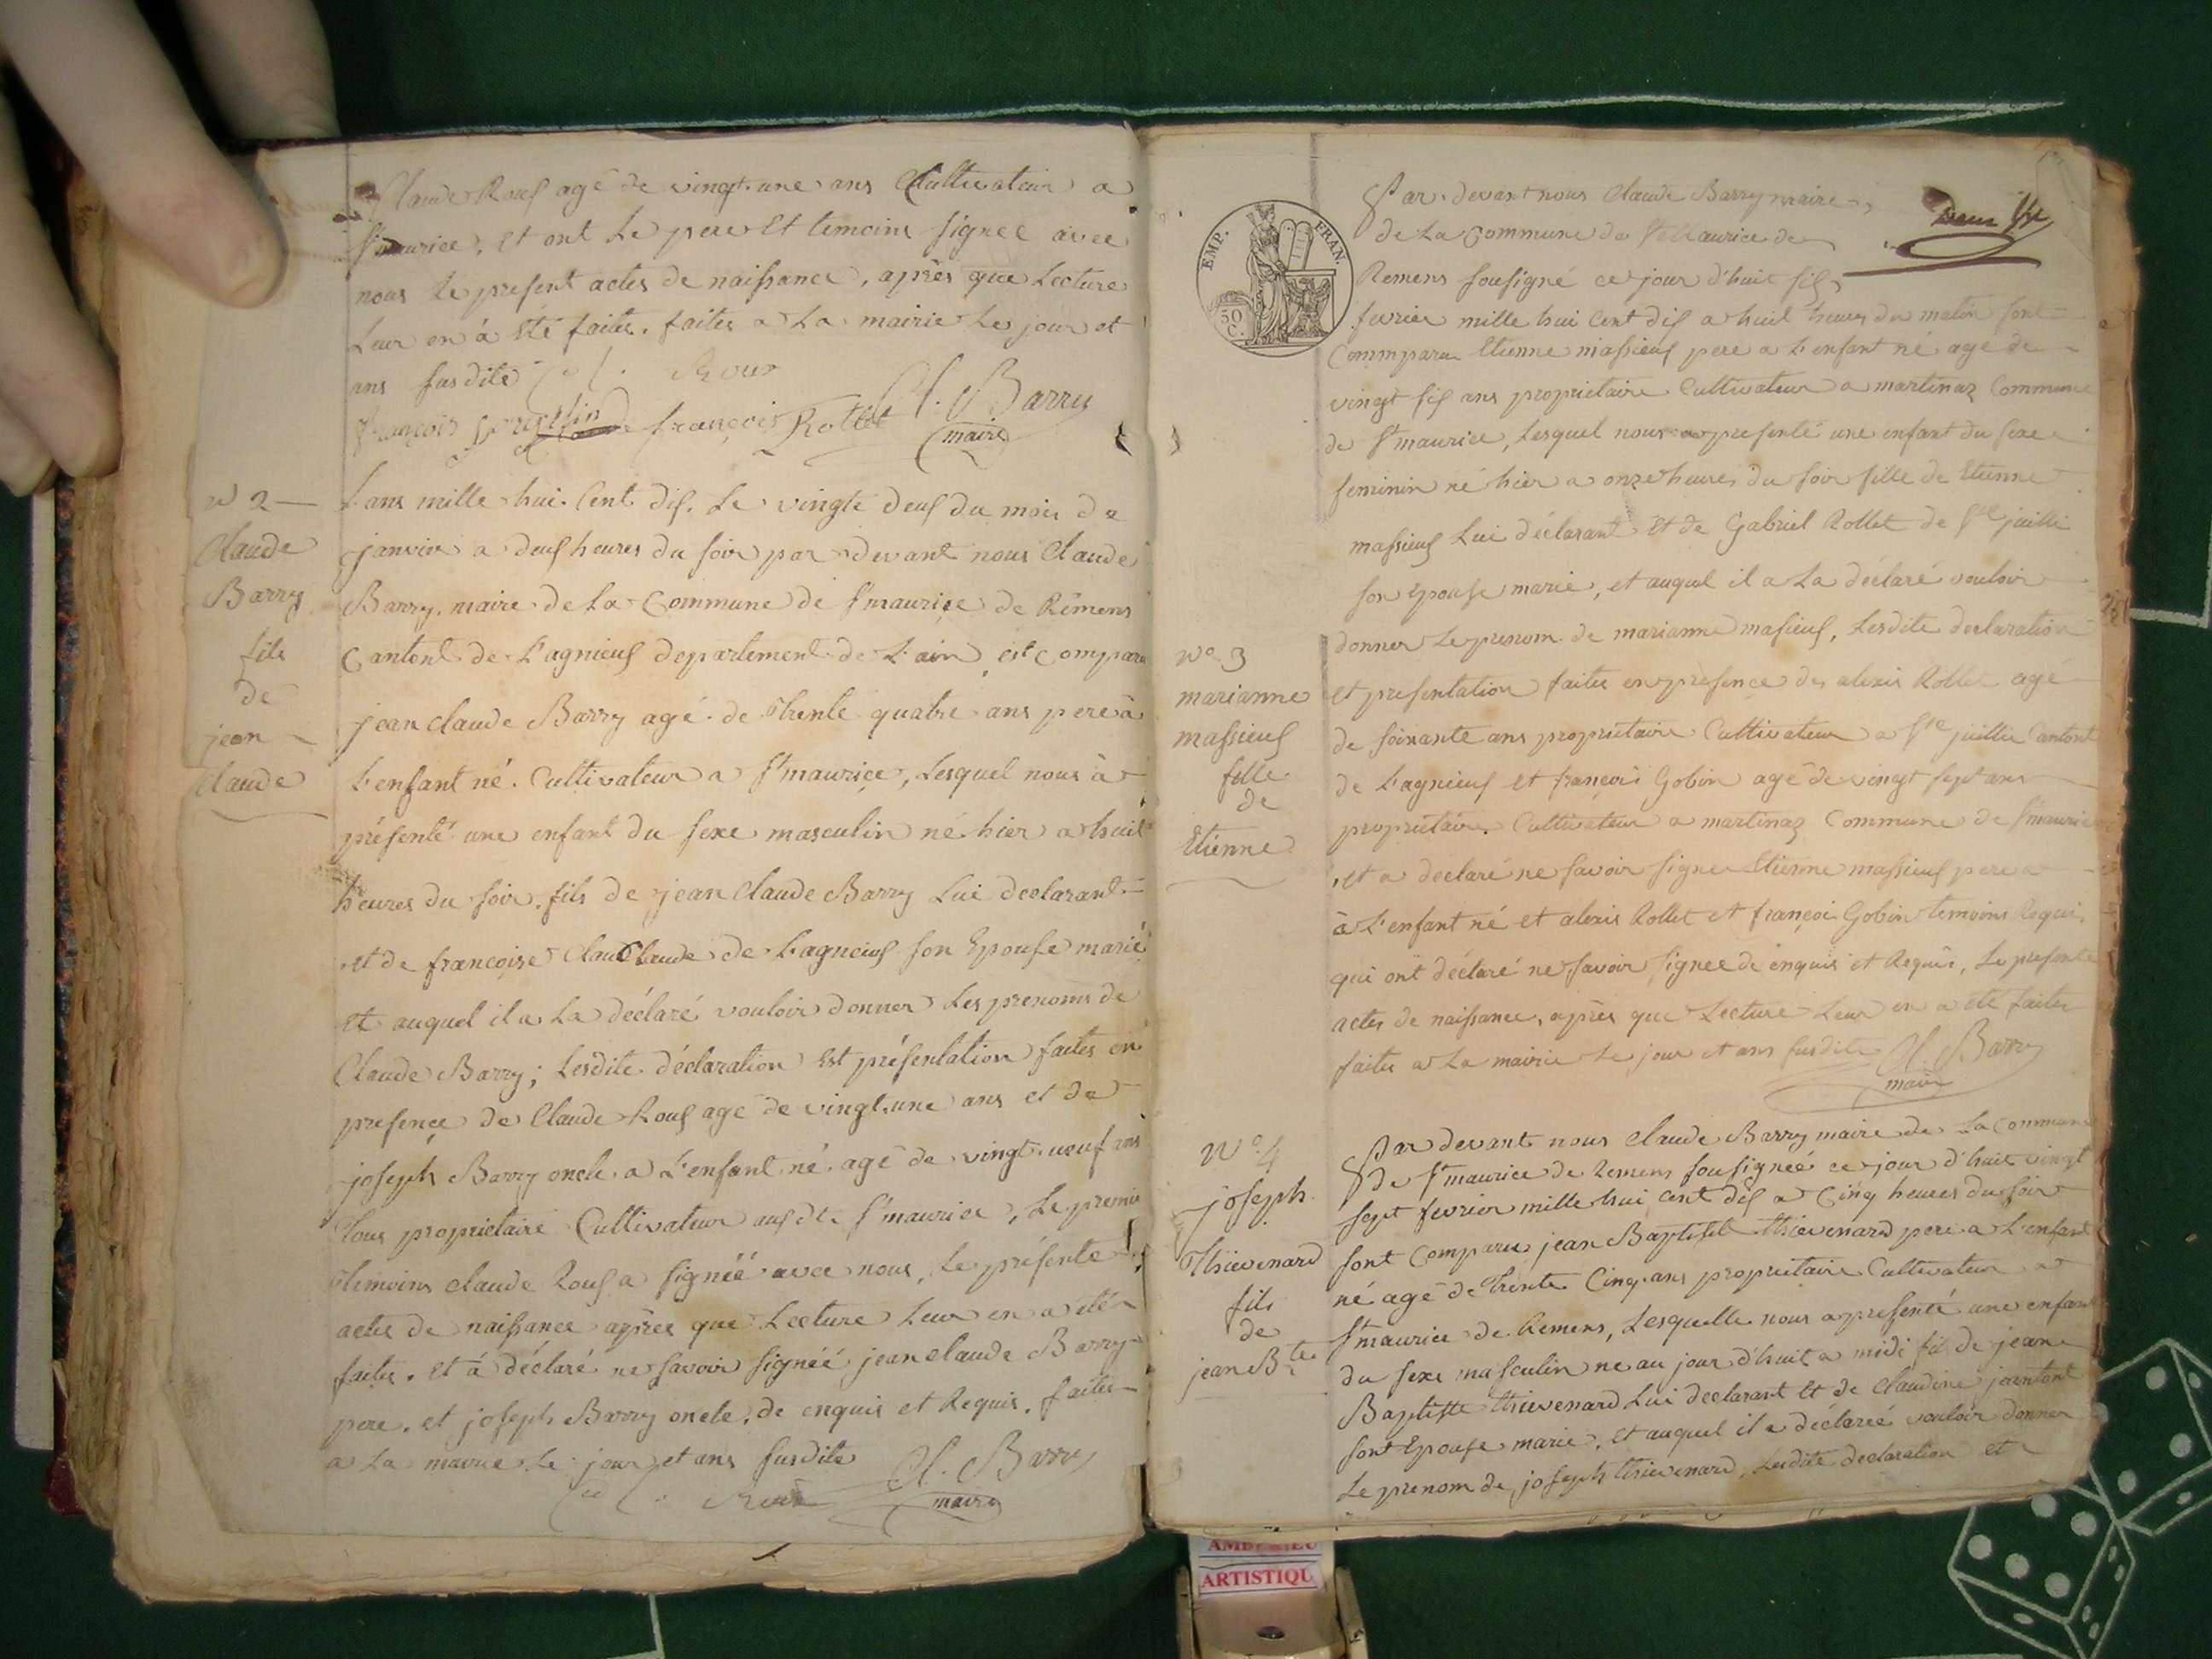 Claude Rouf agé de vingt une ans Cultivateur a
St maurice, et ont le pere Et temoins signee avec
nous le present actes de naissance, après que Lecture
Leur en à Eté faites. faites a La mairie Le jour et
ans susdite Cl. Roux
françois françois Rollet Cl. Barry
maire
N 2
Claude
Barry
fils
de
jean
Claude
L'ans mille hui Cent dis. Le vingte deus du mois de
janvier a deus heures du soir par devant nous Claude
Barry, maire de La Commune de St maurice de Rémens
Cantont de Lagnieus departement de L'ain, est comparu
jean claude Barry agé de Trente quatre ans pere à
L'enfant né. Cultivateur a St maurice, Lesquel nous à
présenté une enfant du sexe masculin né hier a huit
heures du soir, fils de jean Claude Barry Lui declarant
et de françoise Claude de Lagneius son Epouse marié
Et auquel il a La déclaré vouloir donner Les prenoms de
Claude Barry; Lesdite déclaration Est présentation faites en
presence de Claude Rous age de vingt une ans et de
joseph Barry oncle a L'enfant né agé de vingt neuf ans
Tous proprietaire Cultivateur audte St maurice, Le premie
Temoins claude Rous a signéé avec nous, Le présente
actes de naissance après que Lecture Leur en a été
faites. Et à déclaré ne savoir signéé jean claude Barry
pere. et joseph Barry oncle, de enquis et Requis. faites
a La mairie Le jour et ans susdite Cl. Barry
Cl. Roux maire
Par devant nous Claude Barry maire
de La Commune de St Maurice de
Remens sousigné ce jour d'huit sis
fevrier mille hui Cent dis a huit heures du matin sont
Commparu Etienne massieus pere a L'enfant né agé de
vingt sis ans proprietaire Cultivateur a martinaz Commune
de St maurice, Lesquel nous a presenté une enfant du sexe
feminin né hier a onze heures du soir fille de Etienne
massieus Lui déclarant Et de Gabriel Rollet de Ste juilli
son Epouse marie, et auquel il a La déclaré vouloir
donner Le prenom de marianne masieus, Lesdite declaration
et presentation faites en presence de alexis Rollet agé
de soixante ans proprietaire Cultivateur a Ste juillie Cantont
de Lagnieus et françois Gobin agé de vingt sept ans
proprietaire Cultivateur a martinaz Commune de St maurice
, et a declaré ne savoir signer Etienne massieus pere a
à L'enfant né et alexis Rollet et françoi Gobin temoins Requi,
qui ont déclaré ne savoir signee de enquis et Requis, Le presente
actes de naissance, après que Lecture Leur en a été faites
faites a La mairie Le jour et ans susdite Cl. Barry
maire
No 3
marianne
massieus
fille
de
Etienne
No 4
joseph
Thievenard
fils
de
jean Bte
Par devant nous Claude Barry maire de La Commune
de St maurice de Remens sousignéé ce jour d'huit vingt
sept fevrier mille hui cent dis a Cinq heures du soir
sont Comparu jean Baptiste thievenard pere a L'enfant
né agé de Trente Cinq ans proprietaire Cultivateur a
St maurice de Remens, Lesquelle nous a presenté une enfant
du sexe masculin ne au jour d'huit a midi fils de jean
Baptiste thievenard Lui declarant Et de Claudine jeantont
sont Epouse marie, et auquel il a déclareé vouloir donner
Le prenom de joseph thievenard, Lesdite declaration et
EMP. FRAN.
50 C.
ARTISTIQU